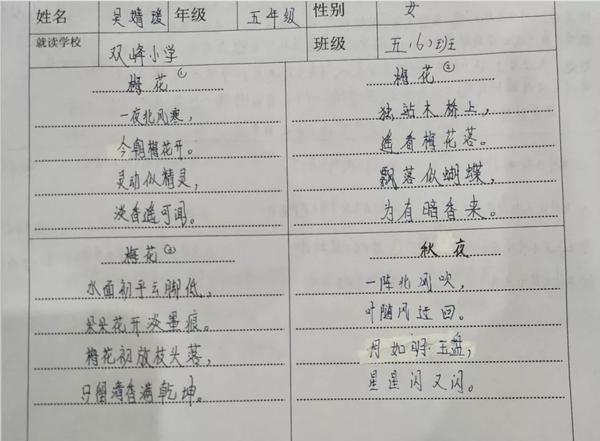 姓名 吴婧瑗 年级 五年级 性别 女
就读学校 双峰小学 班级 五(6)班
梅花①
一夜北风寒，
今朝梅花开。
灵动似精灵，
淡香遥可闻。
梅花②
独站木桥上，
遥看梅花落。
飘落似蝴蝶，
为有暗香来。
梅花③
水面初平云脚低，
朵朵花开淡墨痕。
梅花初放枝头落，
只留清香满乾坤。
秋夜
一阵北风吹，
叶随风迂回。
月如明玉盘，
星星闪又闪。